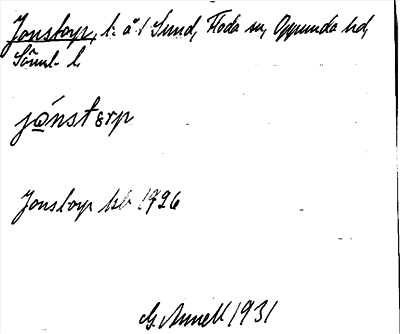 Jonstorp, l. å 1 Sund, Floda sn, Oppunda hd,
Söml. l.
jónstərp
Jonstorp kb 1926
G. Annell 1931